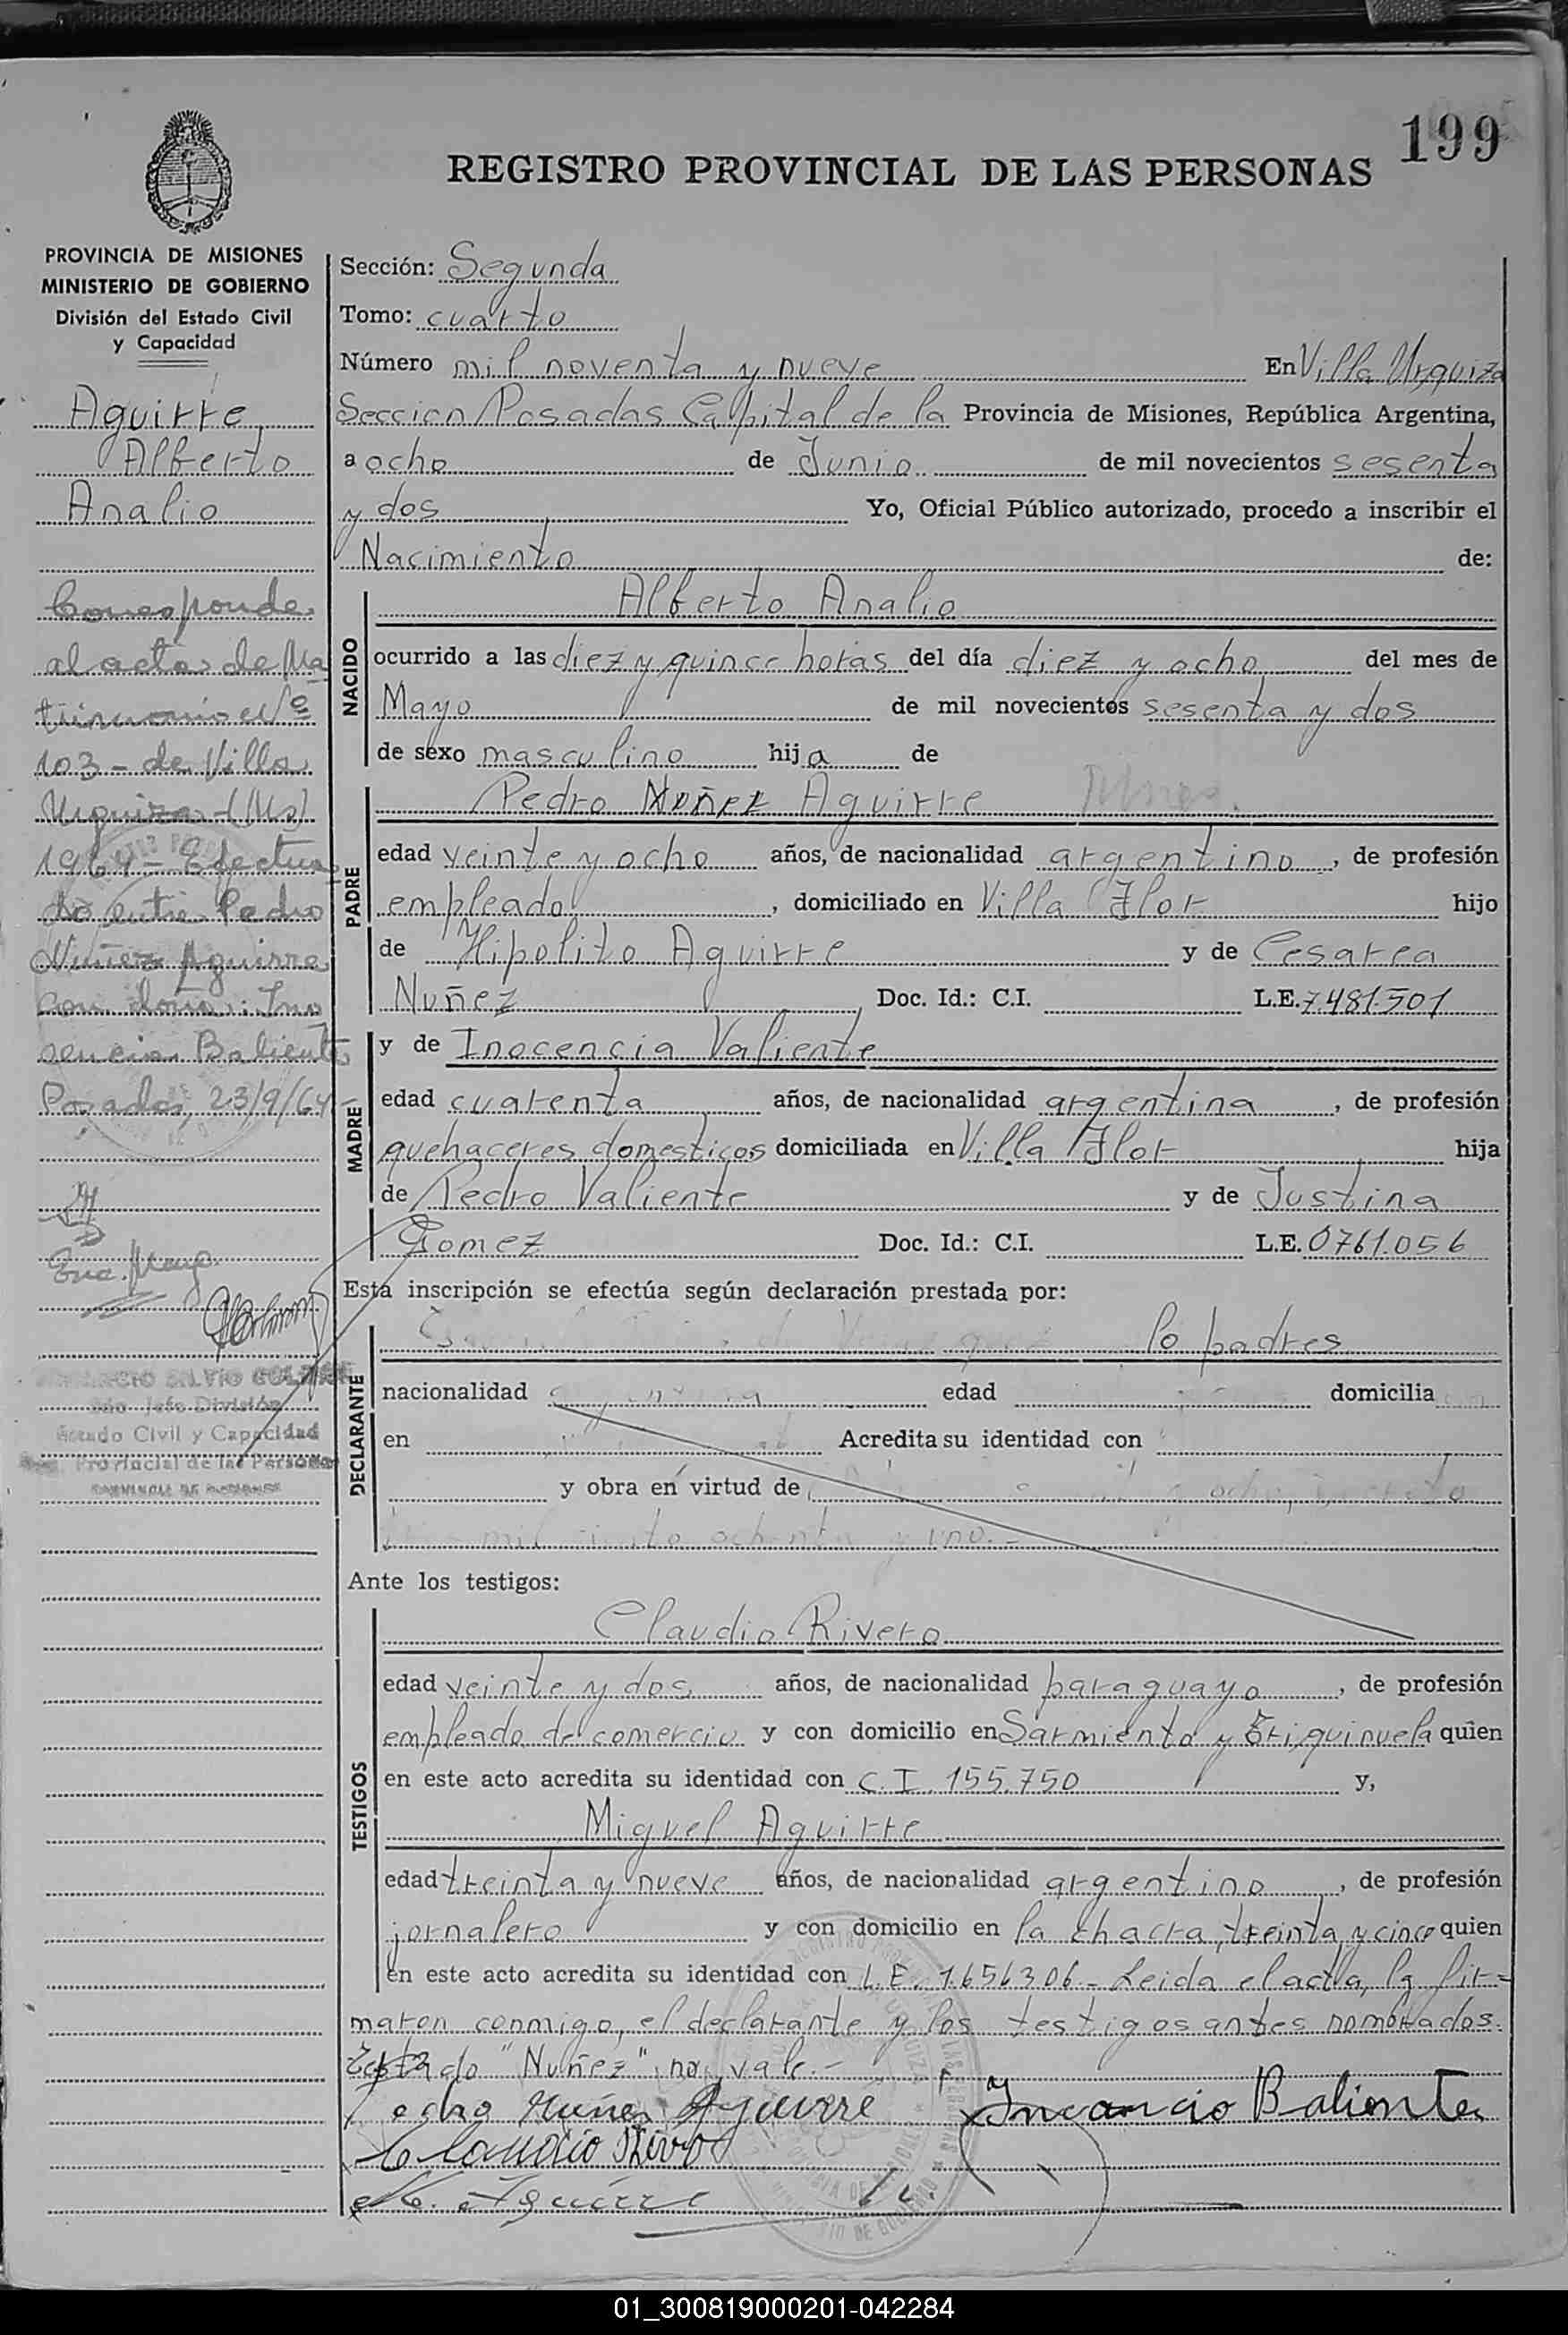 199
REGISTRO PROVINCIAL DE LAS PERSONAS
PROVINCIA DE MISIONES
MINISTERIO DE GOBIERNO
División del Estado Civil
y Capacidad
Aguirre
Alberto
Analio
Corresponde
al acta de Ma
trimonio Nº
103 - de Villa
Urquiza - (Ms)
1964 - Efectua
do entre Pedro
Nuñez Aguirre
con doña: Ino
sencia Baliente
Posadas, 23/9/64
Enc. Mayo
Estado Civil y Capacidad
Provincial de las Personas
Sección: Segunda
Tomo: cuarto
Número mil noventa y nueve En Villa Urquiza
Seccion Posadas Capital de la Provincia de Misiones, República Argentina,
a ocho de Junio de mil novecientos sesenta
y dos Yo, Oficial Público autorizado, procedo a inscribir el
Nacimiento de:
NACIDO
Alberto Analio
ocurrido a las diez y quince horas del día diez y ocho del mes de
Mayo de mil novecientos sesenta y dos
de sexo masculino hija de
PADRE
Pedro Nuñez Aguirre
edad veinte y ocho años, de nacionalidad argentino, de profesión
empleado, domiciliado en Villa Flor hijo
de Hipolito Aguirre y de Cesarea
Nuñez Doc. Id.: C.I. L.E. 7.481.501
MADRE
y de Inocencia Valiente
edad cuarenta años, de nacionalidad argentina, de profesión
quehaceres domesticos domiciliada en Villa Flor hija
de Pedro Valiente y de Justina
Gomez Doc. Id.: C.I. L.E. 0761.056
Esta inscripción se efectúa según declaración prestada por:
DECLARANTE
lo padres
nacionalidad edad domicilia
en Acredita su identidad con
y obra en virtud de
mil ciento ochenta y uno.-
Ante los testigos:
TESTIGOS
Claudio Rivero
edad veinte y dos años, de nacionalidad paraguayo, de profesión
empleado de comercio y con domicilio en Sarmiento y quien
en este acto acredita su identidad con C.I. 155.750 y,
Miguel Aguirre
edad treinta y nueve años, de nacionalidad argentino, de profesión
jornalero y con domicilio en la chacra, treinta y cinco quien
en este acto acredita su identidad con L.E. 1656306.- Leida el acta, la fir-
maron conmigo, el declarante y los testigos antes nombrados.
Testado "Nuñez" no vale.-
Pedro Nuñes Aguirre Baliente
Claudio Rivero
M. Aguirre
01_300819000201-042284